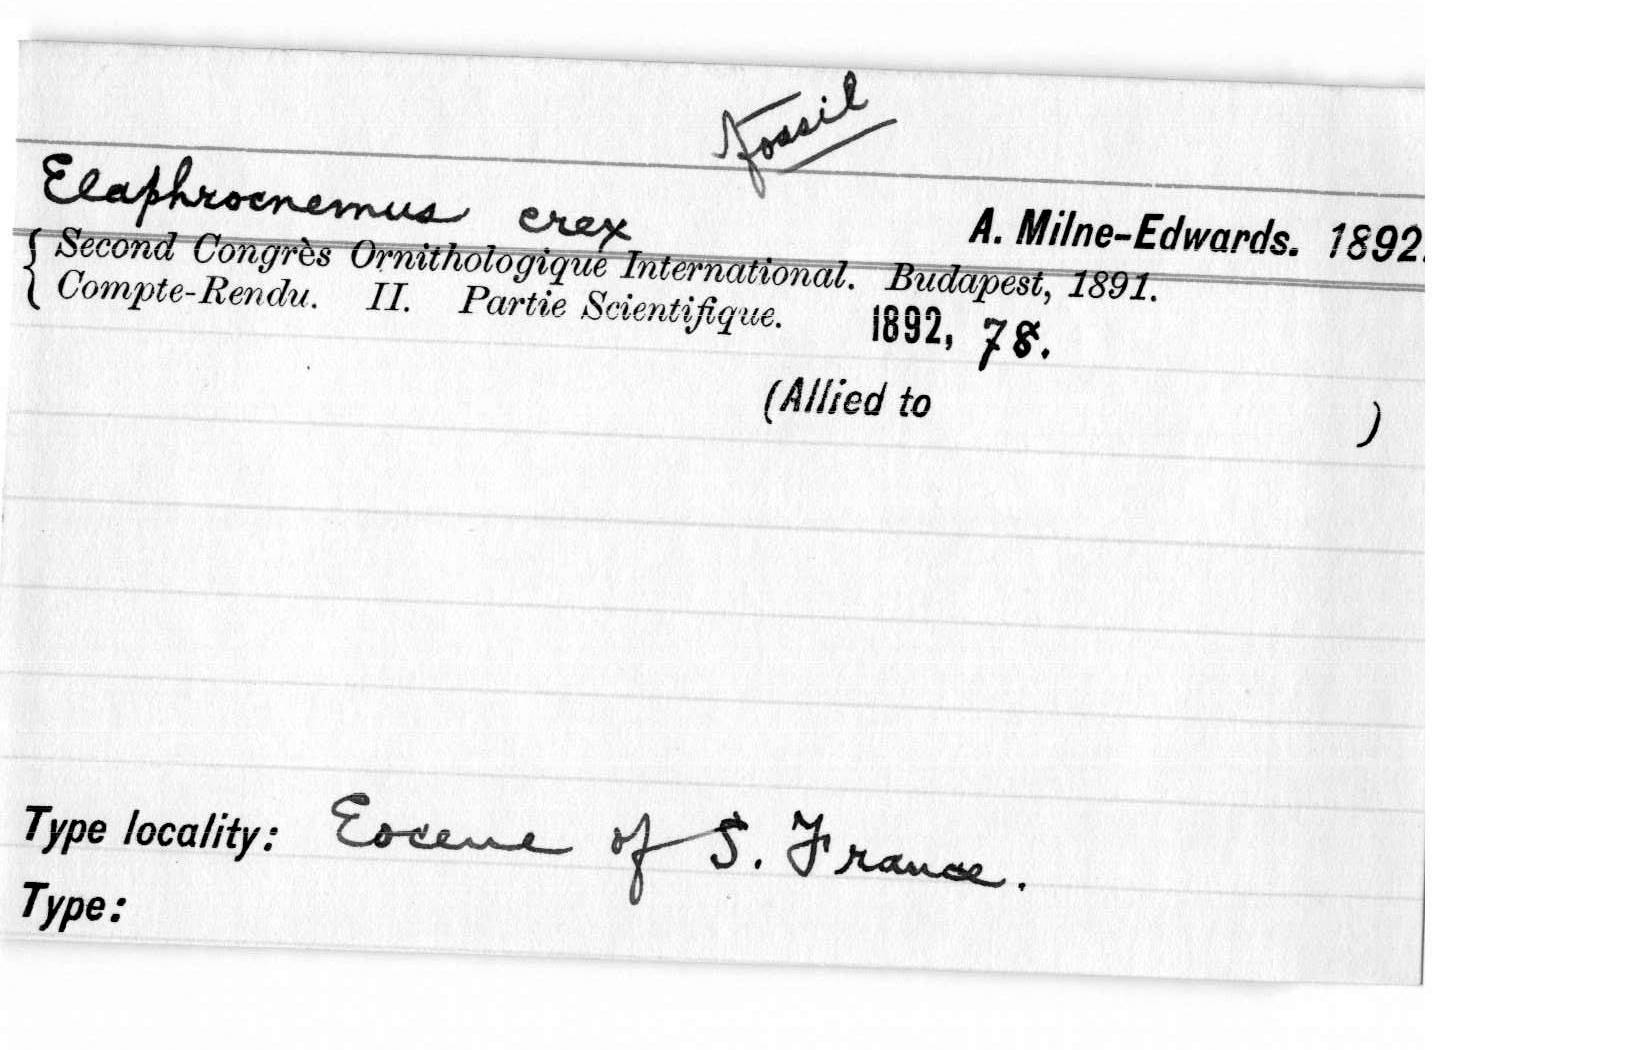 Fossil
Elaphrocnemus crex A. Milne-Edwards. 1892.
Second Congrès Ornithologique International. Budapest, 1891.
Compte-Rendu. II. Partie Scientifique. 1892, 78.
(Allied to )
Type locality: Eocene of S. France.
Type: